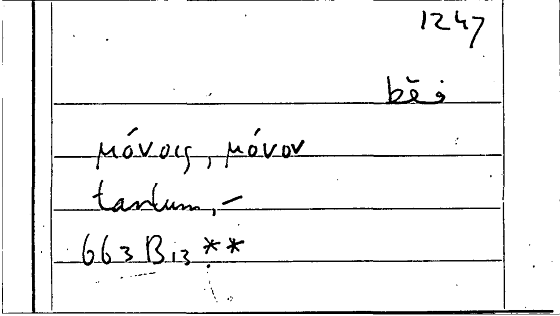 1247
bĕ;
μόνοις, μόνον
tantum, -
663 B13 **